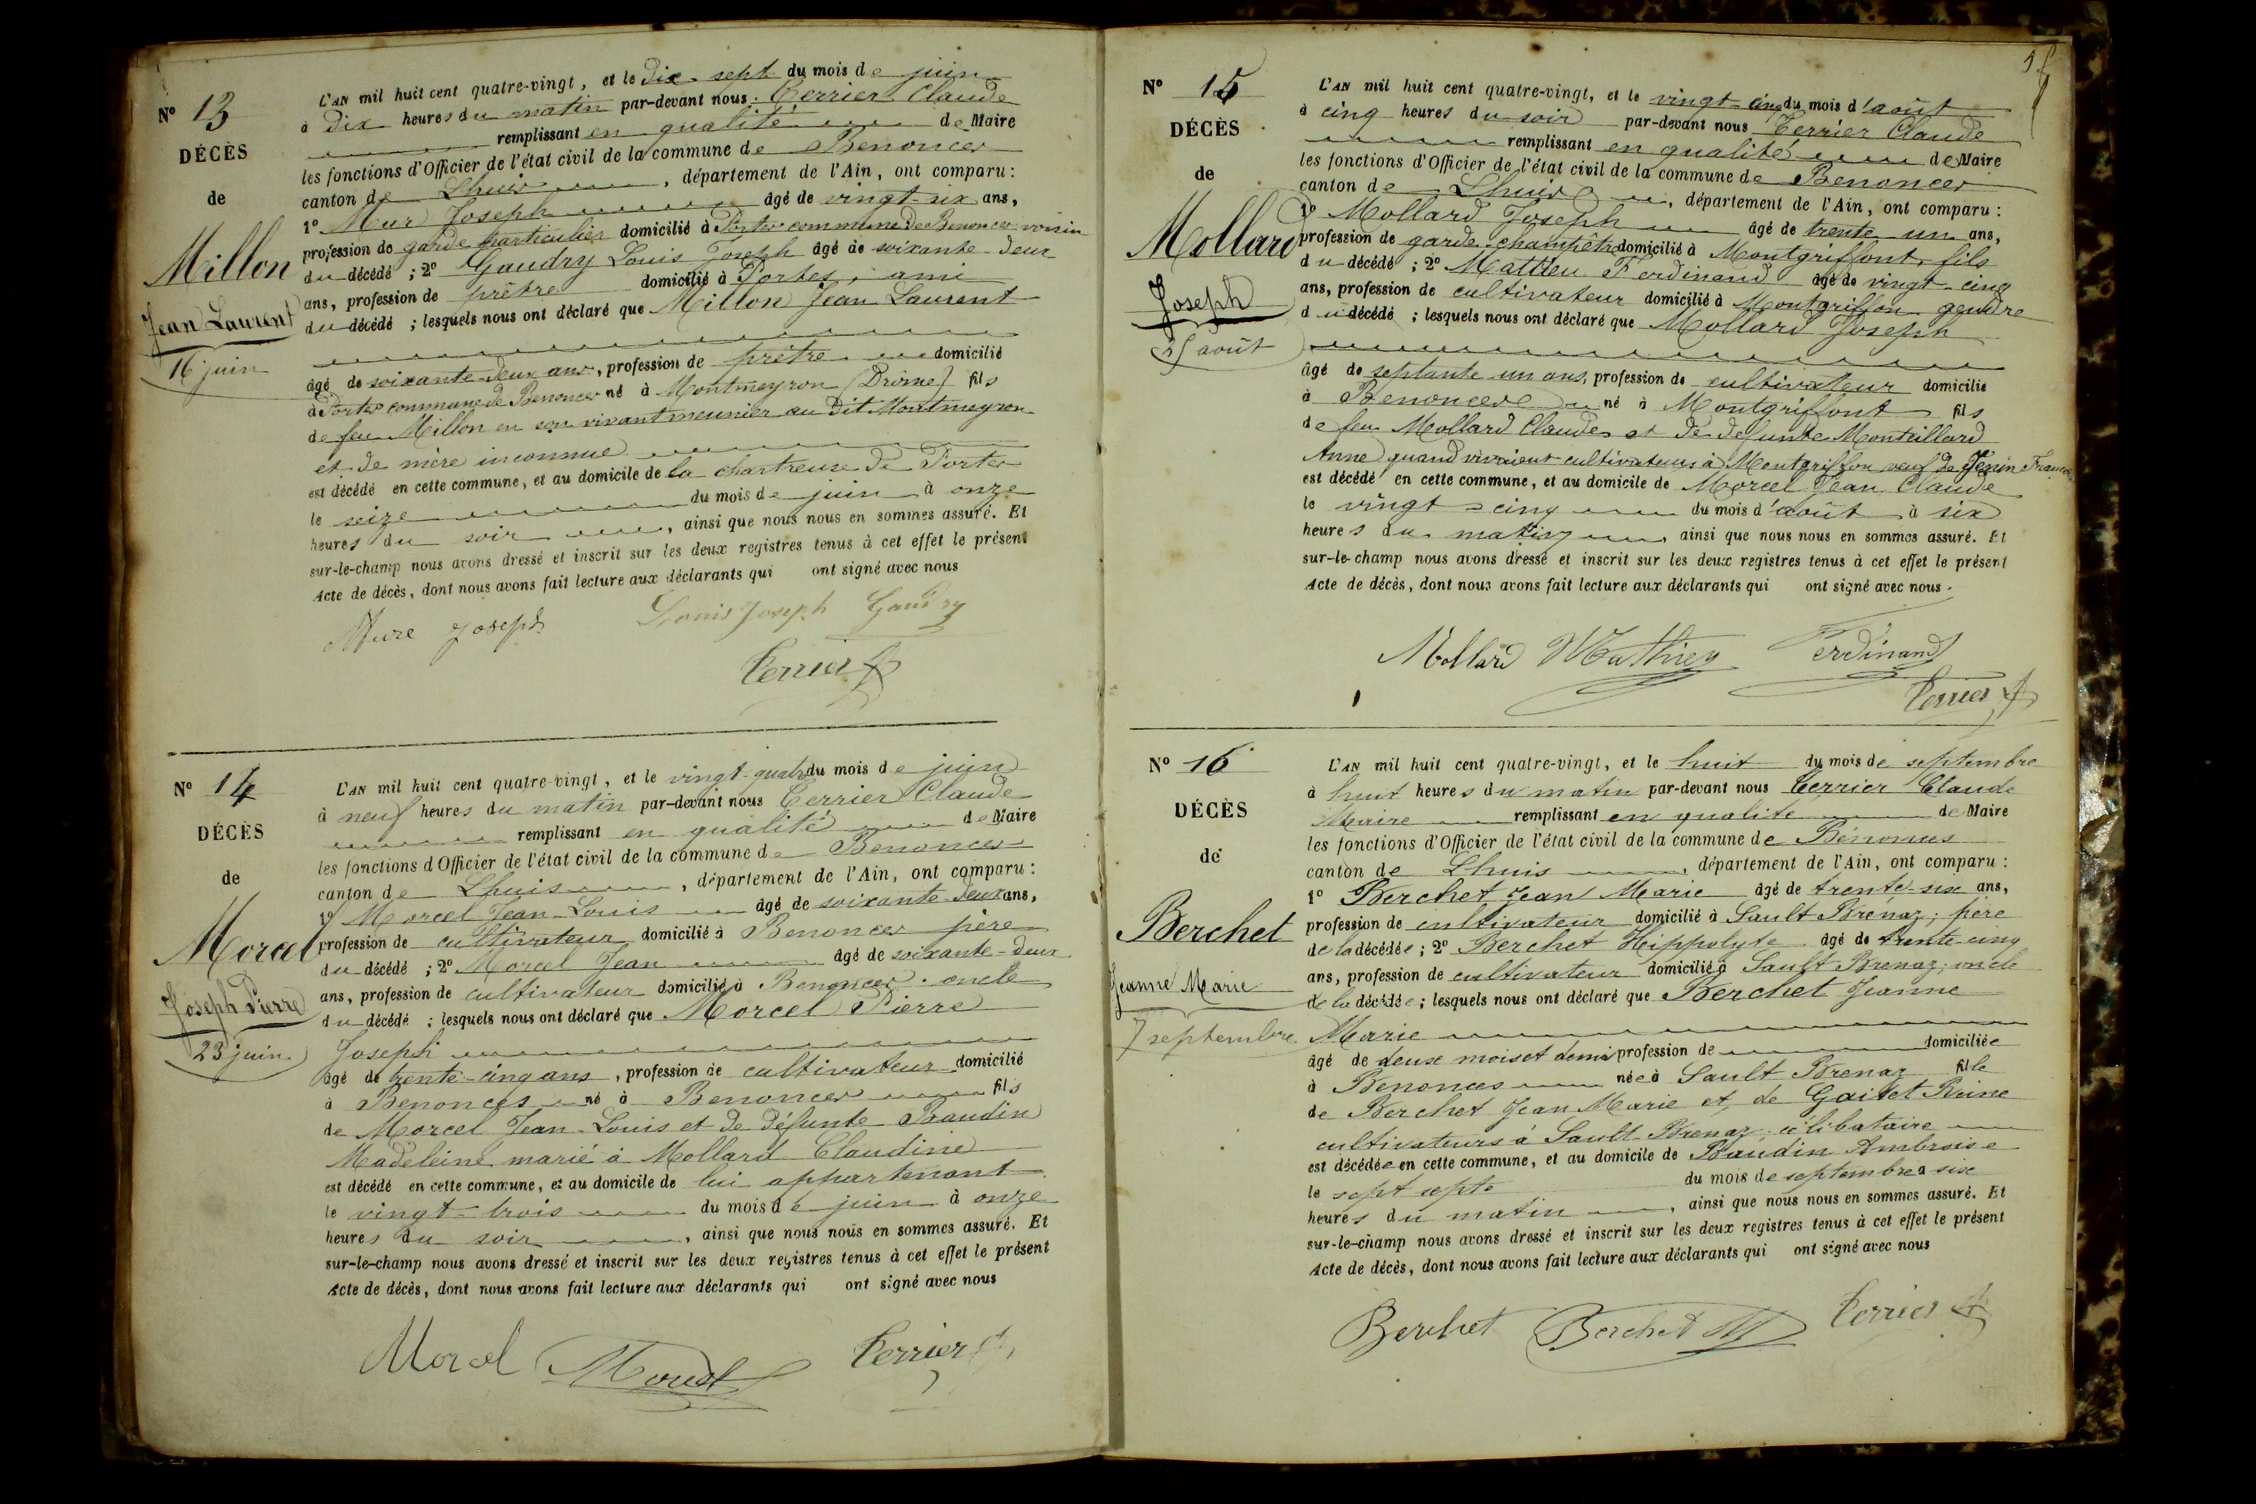 N° 13
DÉCÈS
de
Millon
Jean Laurent
16 juin
L'AN mil huit cent quatre-vingt, et le dix-sept du mois de juin
à dix heures du matin par-devant nous Terrier Claude
remplissant en qualité de Maire
les fonctions d'Officier de l'état civil de la commune de Benonces
canton de Lhuis, département de l'Ain, ont comparu :
1° Mur Joseph âgé de vingt-six ans,
profession de garde particulier domicilié à Portes commune de Benonces voisin
du décédé ; 2° Gaudry Louis Joseph âgé de soixante-deux
ans, profession de prêtre domicilié à Portes, ami
du décédé ; lesquels nous ont déclaré que Millon Jean Laurent
âgé de soixante-deux ans, profession de prêtre domicilié
à Portes commune de Benonces né à Montmeyron (Drôme) fils
de feu Millon en son vivant meunier au dit Montmeyron
et de mère inconnue
est décédé en cette commune, et au domicile de la chartreuse de Portes
le seize du mois de juin à onze
heures du soir, ainsi que nous nous en sommes assuré. Et
sur-le-champ nous avons dressé et inscrit sur les deux registres tenus à cet effet le présent
Acte de décès, dont nous avons fait lecture aux déclarants qui ont signé avec nous
Mure Joseph Louis Joseph Gaudry
Terrier
N° 14
DÉCÈS
de
Morcel
Joseph Pierre
23 juin
L'AN mil huit cent quatre-vingt, et le vingt-quatre du mois de juin
à neuf heures du matin par-devant nous Terrier Claude
remplissant en qualité de Maire
les fonctions d'Officier de l'état civil de la commune de Benonces
canton de Lhuis, département de l'Ain, ont comparu :
1° Morcel Jean-Louis âgé de soixante-deux ans,
profession de cultivateur domicilié à Benonces père
du décédé ; 2° Morcel Jean âgé de soixante-deux
ans, profession de cultivateur domicilié à Benonces. oncle
du décédé ; lesquels nous ont déclaré que Morcel Pierre
Joseph
âgé de trente-cinq ans, profession de cultivateur domicilié
à Benonces né à Benonces fils
de Morcel Jean-Louis et de défunte Baudin
Madeleine marié à Mollard Claudine
est décédé en cette commune, et au domicile de lui appartenant
le vingt-trois du mois de juin à onze
heures du soir, ainsi que nous nous en sommes assuré. Et
sur-le-champ nous avons dressé et inscrit sur les deux registres tenus à cet effet le présent
Acte de décès, dont nous avons fait lecture aux déclarants qui ont signé avec nous
Morcel Morcel Terrier
N° 15
DÉCÈS
de
Mollard
Joseph
25 août
L'AN mil huit cent quatre-vingt, et le vingt-cinq du mois d'août
à cinq heures du soir par-devant nous Terrier Claude
remplissant en qualité de Maire
les fonctions d'Officier de l'état civil de la commune de Benonces
canton de Lhuis, département de l'Ain, ont comparu :
1° Mollard Joseph âgé de trente-un ans,
profession de garde-champêtre domicilié à Montgriffont, fils
du décédé ; 2° Mathieu Ferdinand âgé de vingt-cinq
ans, profession de cultivateur domicilié à Montgriffon gendre
du décédé ; lesquels nous ont déclaré que Mollard Joseph
âgé de septante un ans, profession de cultivateur domicilié
à Benonces né à Montgriffont fils
de feu Mollard Claude et de défunte Monteillard
Anne quand vivaient cultivateurs à Montgriffon veuf de Jenin
est décédé en cette commune, et au domicile de Morcel Jean Claude
le vingt-cinq du mois d'août à six
heures du matin, ainsi que nous nous en sommes assuré. Et
sur-le-champ nous avons dressé et inscrit sur les deux registres tenus à cet effet le présent
Acte de décès, dont nous avons fait lecture aux déclarants qui ont signé avec nous.
Mollard Mathieu Ferdinand
Terrier
N° 16
DÉCÈS
de
Berchet
Jeanne Marie
7 septembre
L'AN mil huit cent quatre-vingt, et le huit du mois de septembre
à huit heures du matin par-devant nous Terrier Claude
Maire remplissant en qualité de Maire
les fonctions d'Officier de l'état civil de la commune de Bénonces
canton de Lhuis, département de l'Ain, ont comparu :
1° Berchet Jean Marie âgé de trente-six ans,
profession de cultivateur domicilié à Sault Brénaz; père
de la décédée ; 2° Berchet Hippolyte âgé de trente cinq
ans, profession de cultivateur domicilié à Sault Brenaz; oncle
de la décédée ; lesquels nous ont déclaré que Berchet Jeanne
Marie
âgé de deux mois et demi profession de domiciliée
à Benonces née à Sault Brenaz fille
de Berchet Jean Marie et de Gaitet Reine
cultivateurs à Sault Brenaz; célibataire
est décédée en cette commune, et au domicile de Baudin Ambroise
le sept septe du mois de septembre à six
heures du matin, ainsi que nous nous en sommes assuré. Et
sur-le-champ nous avons dressé et inscrit sur les deux registres tenus à cet effet le présent
Acte de décès, dont nous avons fait lecture aux déclarants qui ont signé avec nous
Berchet Berchet Terrier